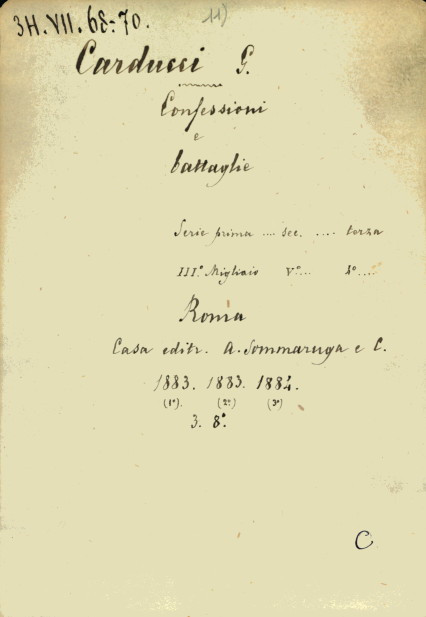 3H. VII. 68-70.
11)
Carducci G.
Confessioni
e
battaglie
Serie prima .... sec. .... terza
III.º Migliaio Vº... 4º....
Roma
Casa editr. A. Sommaruga e C.
1883. 1883. 1884.
(1ª). (2ª) (3ª)
3. 8º.
C